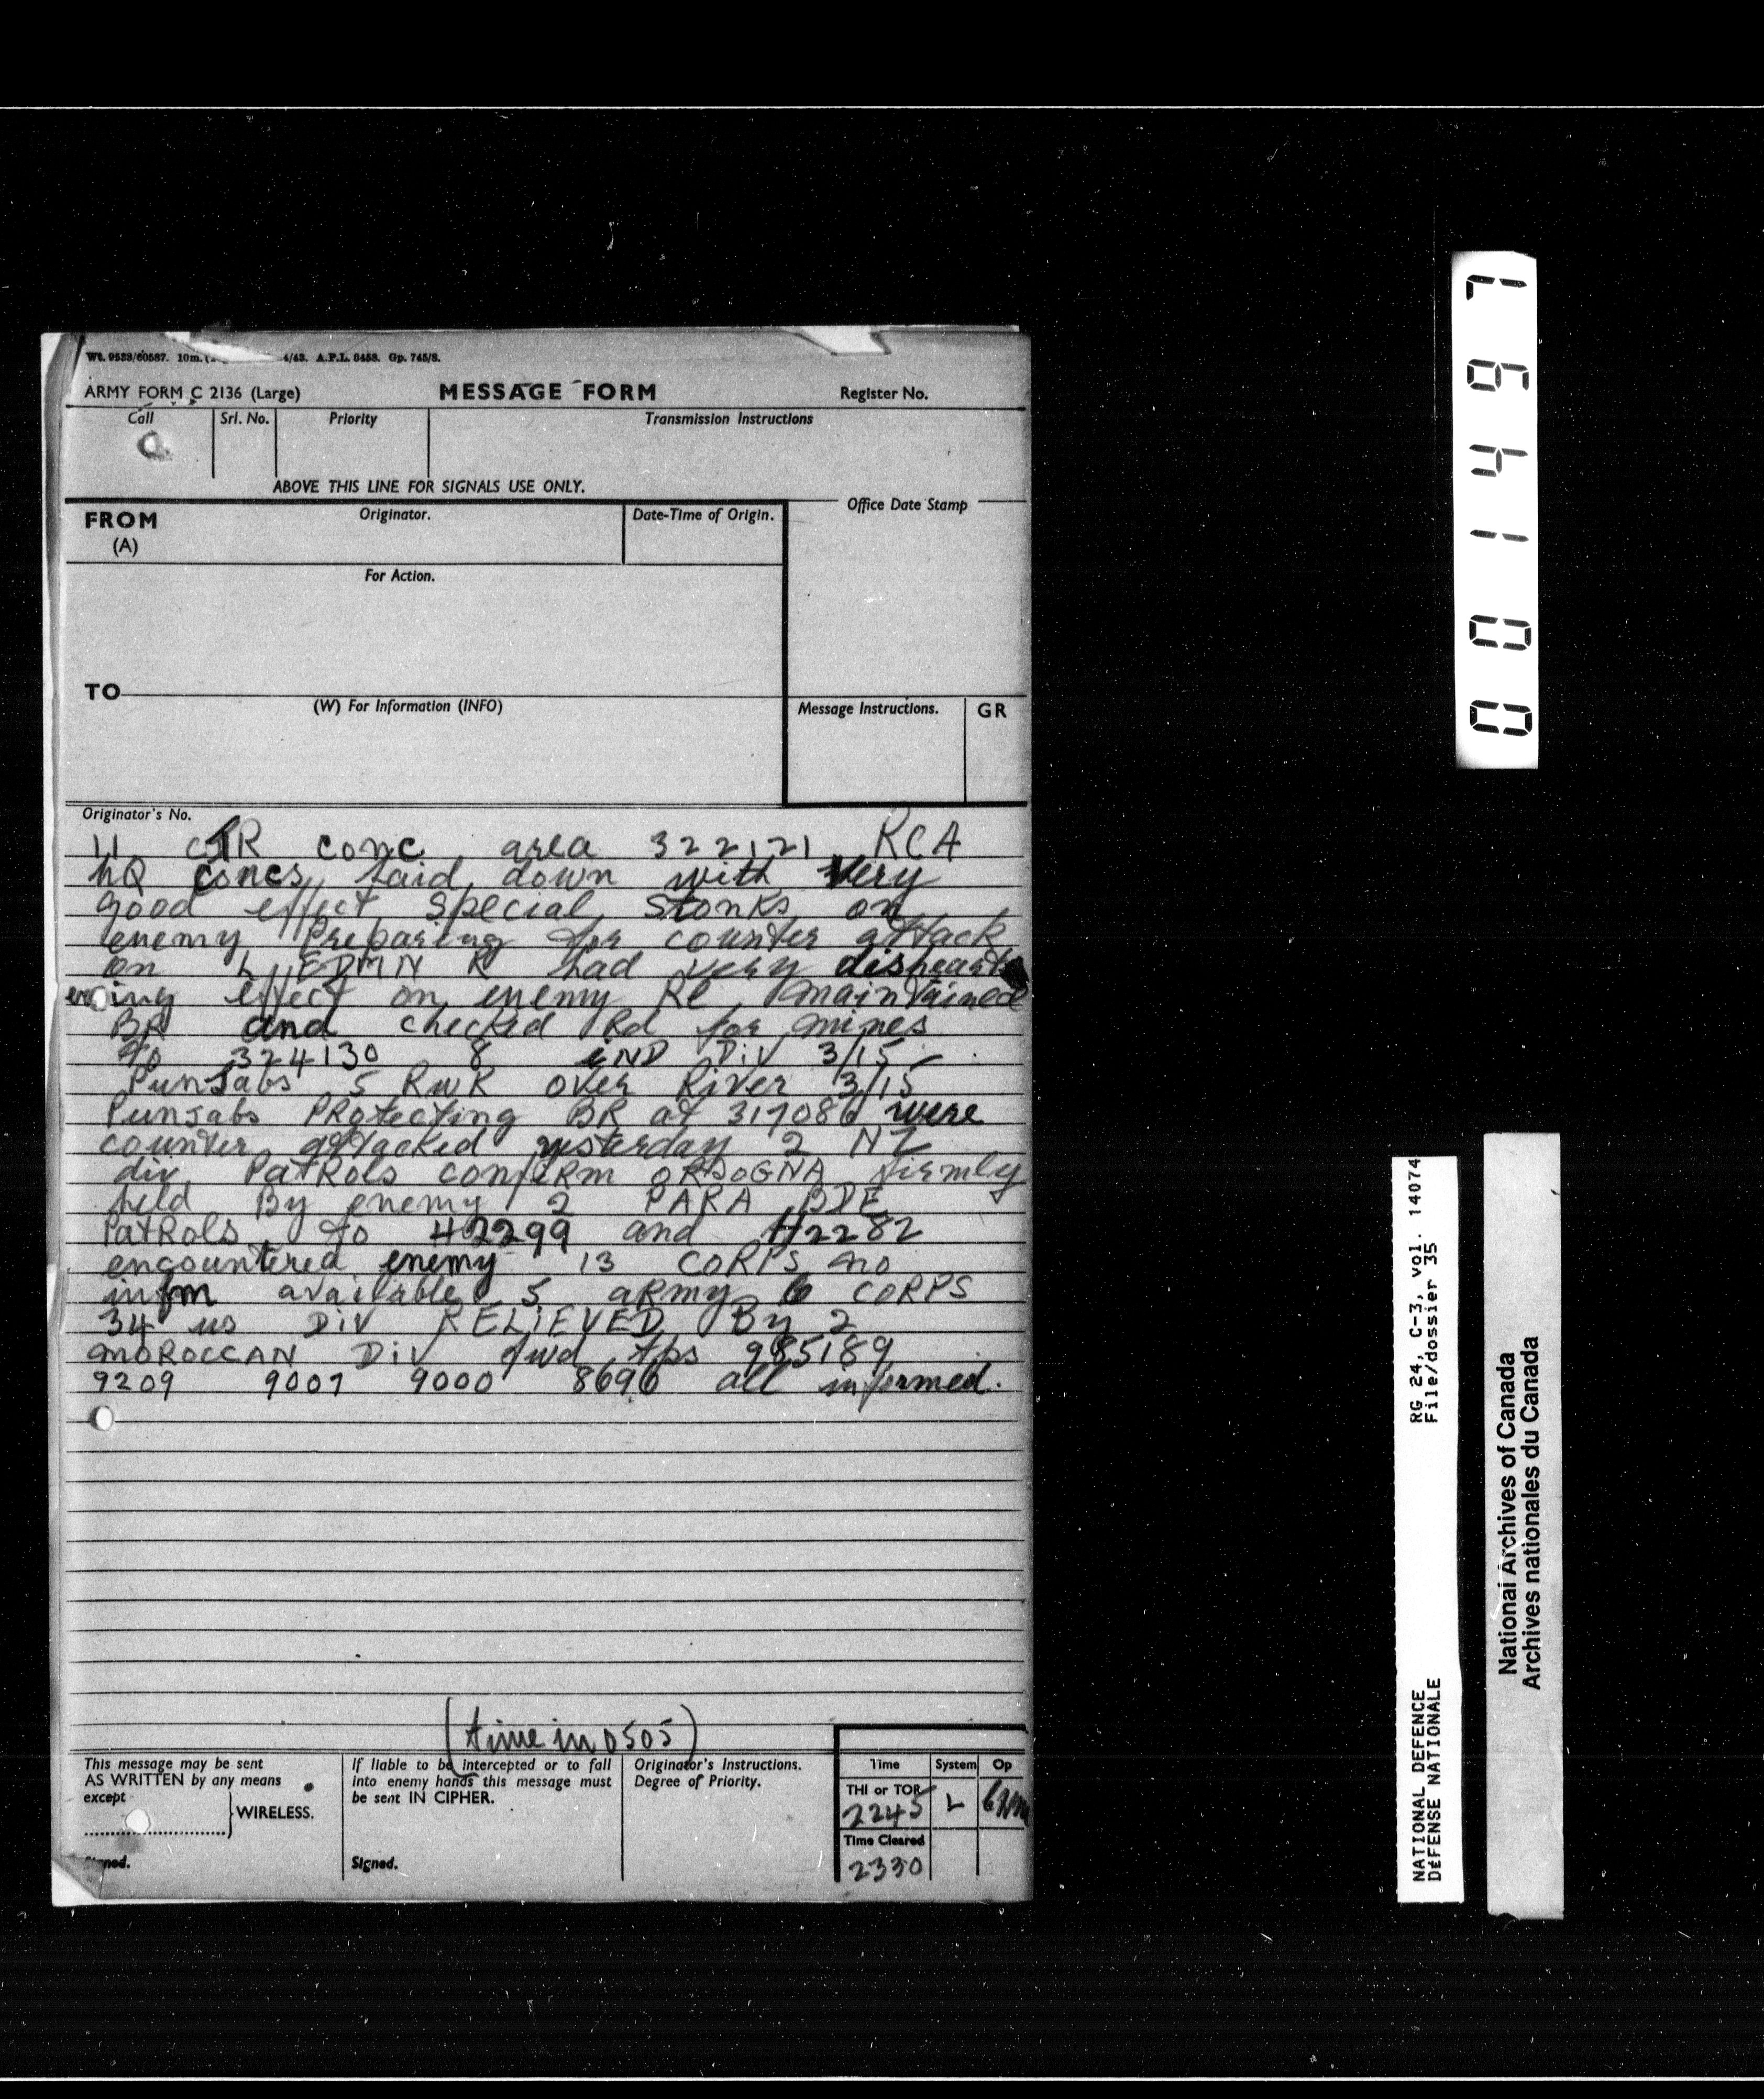 Wt. 9533/60587. 10m. 4/43. A.P.L. 6458. Gp. 745/8.
ARMY FORM C 2136 (Large) MESSAGE FORM Register No.
Call Srl. No. Priority Transmission Instructions
ABOVE THIS LINE FOR SIGNALS USE ONLY.
FROM (A) Originator. Date-Time of Origin. Office Date Stamp
For Action.
TO
(W) For Information (INFO) Message Instructions. GR
Originator's No.
11 CTR conc area 322121 RCA
hQ concs laid down with very
good effect special stonks on
enemy Preparing for counter attack
on L EDMN R had very disheart
ening effect on enemy RE maintained
BR and checked Rd for mines
to 324130 8 iND Div 3/15
Punjabs 5 RWK over River 3/15
Punjabs PRotecting BR at 317086 were
counter attacked yesterday 2 NZ
div PatRols confiRm ORSOGNA firmly
held By enemy 2 PARA BDE
PatRols to H2299 and H2282
encountered enemy 13 CORPS no
infm available 5 aRmy 6 CORPS
34 us Div RELiEVED By 2
MOROCCAN Div fwd tps 985189
9209 9007 9000 8696 all informed.
(time in 0505)
This message may be sent AS WRITTEN by any means except WIRELESS.
If liable to be intercepted or to fall into enemy hands this message must be sent IN CIPHER.
Originator's Instructions. Degree of Priority.
Time System Op
THI or TOR 2245 L
Time Cleared 2330
Signed. Signed.
0 0 1 4 9 7
RG 24, C-3, vol. 14074
File/dossier 35
NATIONAL DEFENCE
DÉFENSE NATIONALE
National Archives of Canada
Archives nationales du Canada